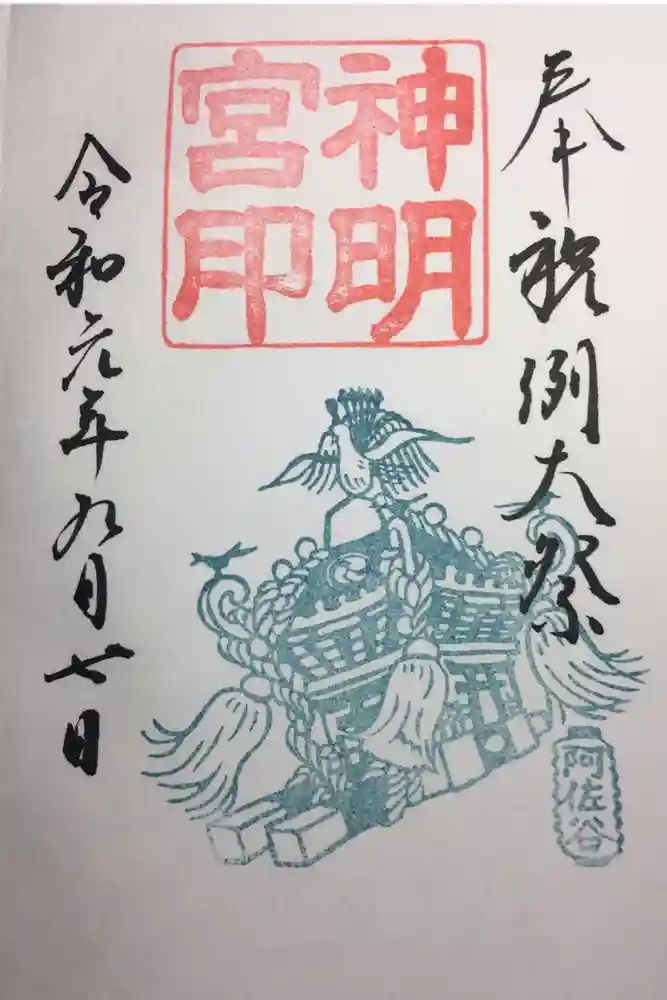 奉祝例大祭
神明
宮印
阿佐谷
令和元年九月七日